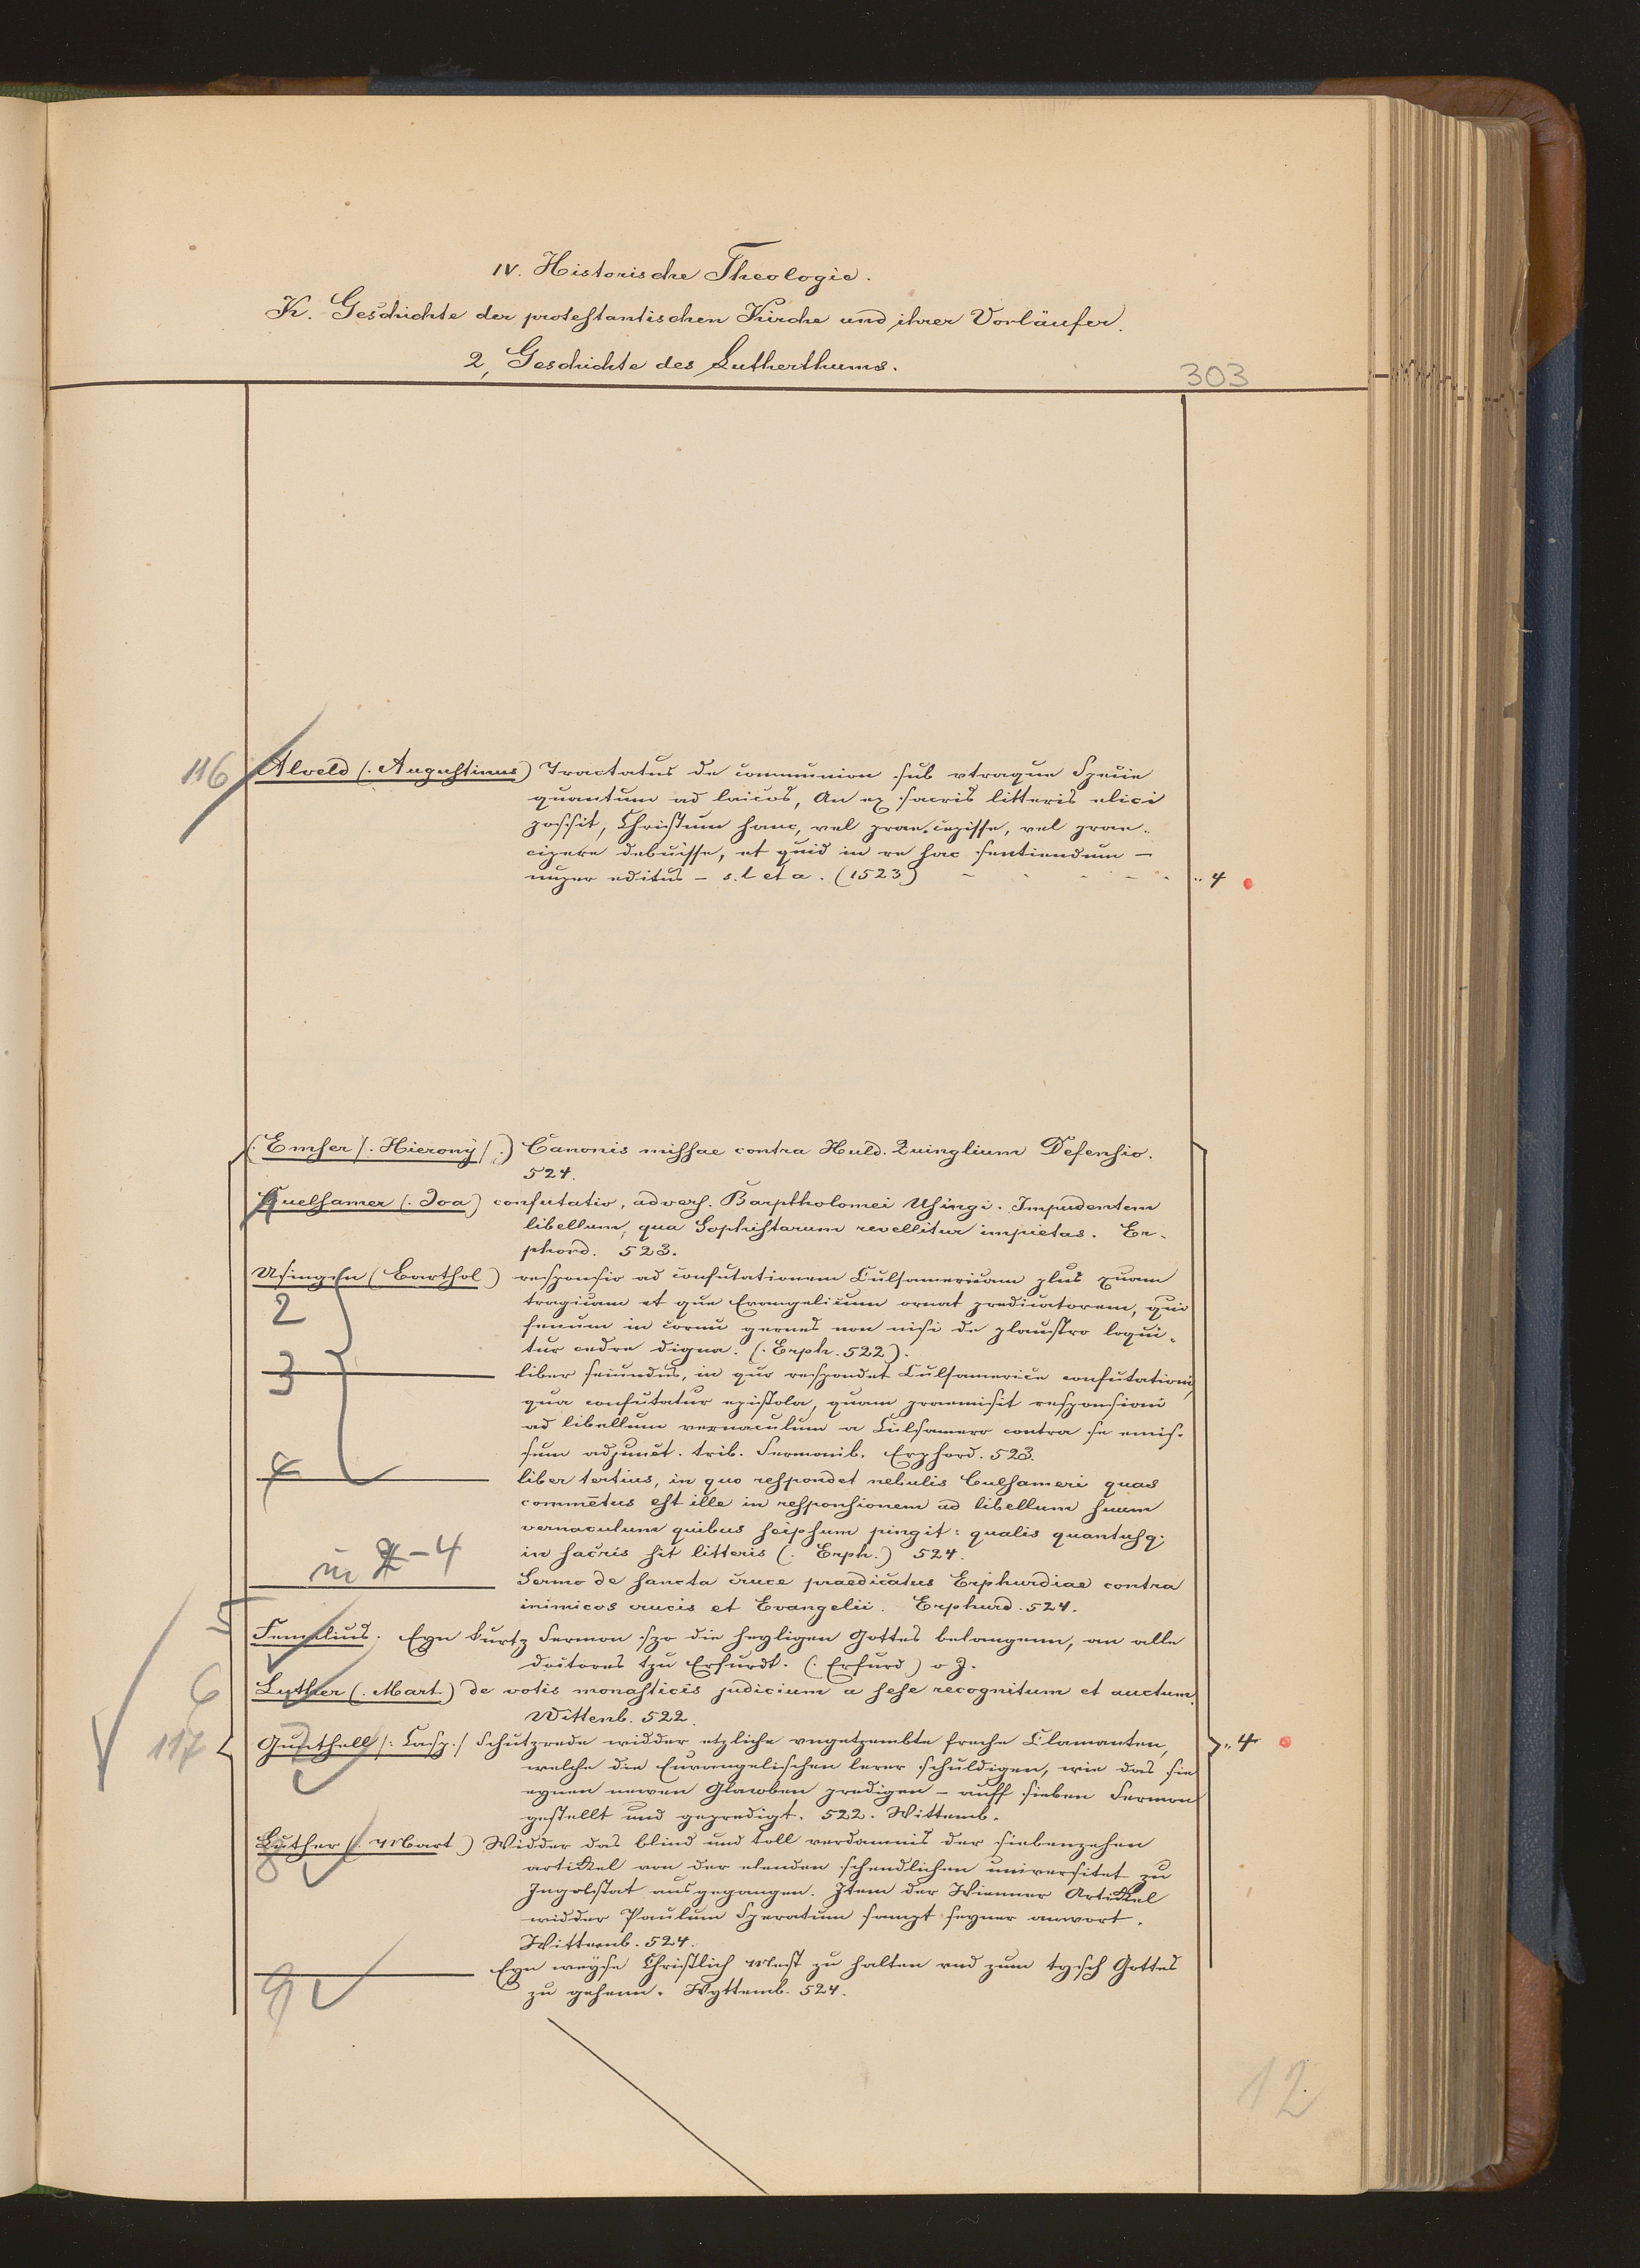 IV. Historische Theologie.
K. Geschichte der protestantischen Kirche und ihrer Vorläufer.
2, Geschichte des Lutherthums.
303
116 Alveld (. Augustinus) Tractatus de communion sub vtraque Specie
quantum ad laicos, An ex sacris litteris elici
possit, Christum hanc, vel praecepisse, vel prae-
cipere debuisse, et quid in re hac sentiendum -
nuper editus - s. l et a. (1523) - - - - - „ 4
(. Emser /. Hierony /.) Canonis missae contra Huld. Zuinglium Defensio.
524.
Cuelsamer (. Joa) confutatio, advers. Barptholomei Usingi. Impudentem
libellum, qua Sophistarum revellitur impietas. Er-
phord. 523.
Usingen (Barthol) responsio ad confutationem Culsamericam plus quam
2 tragicam et que Evangelicum ornat predicatorem, qui
fenum in cornu gernes non nisi de plaustro loqui-
tur cedre digna. (. Erph. 522).
3 liber secundus, in quo respondet Culsamerice confutationi,
qua confutatur epistola, quam praemisit responsioni
ad libellum vernaculum a Culsamero contra se emis-
sum adjunct. trib. Sermonib. Erphord. 523.
4 liber tertius, in quo respondet nebulis Culsameri quas
commētus est ille in responsionem ad libellum suum
vernaculum quibus seipsum pingit: qualis quantusq;
in sacris sit litteris (. Erph.) 524.
in 2-4 Sermo de sancta cruce praedicatus Erphurdiae contra
inimicos crucis et Evangelii. Erphurd. 524.
5 Femelius. Eyn kurtz Sermon szo die heyligen Gottes belangenn, an alle
doctores tzu Erfurdt. (. Erfurd) o J.
6 Luther (. Mart.) de votis monasticis judicium a sese recognitum et auctum.
Wittenb. 522.
117 Gutthell /: Casp./ Schutzrede widder etzliche vngetzembte freche Clamanten, „ 4
7 welche die Euvangelischen lerer schuldigen, wie das sie
eynen newen Glawben predigen - auff sieben Sermon
gestellt und gepredigt. 522. Wittemb.
Luther (. Mart.) Widder das blind und toll verdamnis der siebenzehen
8 artickel von der elenden schendlichen universitet zu
Ingolstat ausgegangen. Item der Wienner Artickel
widder Paulum Speratum sampt seyner anwort.
Wittemb. 524.
9 Eyn weyse Christlich Mest zu halten vnd zum tysch Gottes
zu gehenn. Wyttemb. 524.
12